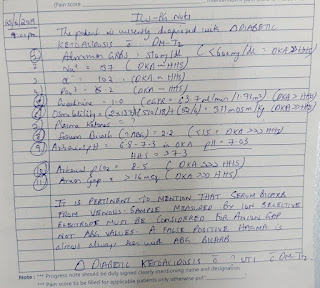 (Pain score
ICU-PG Notes
The patient is currently diagnosed with DIABETIC
KETOACIDOSIS c̄ DM-T2
Abnormal GRBS: mg/dl (DKA HHS)
② Na⁺ : 137 (DKA HHS)
③ Cl⁻ 102 (DKA HHS)
Po₄²⁻ 8.2 (DKA HHS)
Creatinine - 1.0 (eGFR = 63.7 ml/min/1.73m²) (DKA > HHS)
⑥ Osmolality = (2x137)+(510/18)+(52/6) = 311 mosm/kg (DKA HHS)
⑦ Plasma Ketones = ?
⑧ Serum Bicarb (ABG) = 2.2 (<15 = DKA >>> HHS)
⑨ Arterial pH = 6.8-7.3 in DKA pH = 7.03
HHS = >7.3
⑩ Arterial pCO₂ = 8.5 (DKA >>> HHS)
⑪ Anion Gap = >16 meq (DKA >>> HHS)
IT IS PERTINENT TO MENTION THAT SERUM BICARB
FROM VENOUS SAMPLE MEASURED BY ION SELECTIVE
ELECTRODE MUST BE CONSIDERED FOR ANION GAP
NOT ABG VALUES. A FALSE POSITIVE HAGMA is
almost always seen with ABG BICARB
△ DIABETIC KETOACIDOSIS c̄ ? UTI c̄ DM-T2.
Note : *** Progress note should be duly signed clearly mentioning name and designation
*** Pain score to be filled for applicable patients only otherwise put